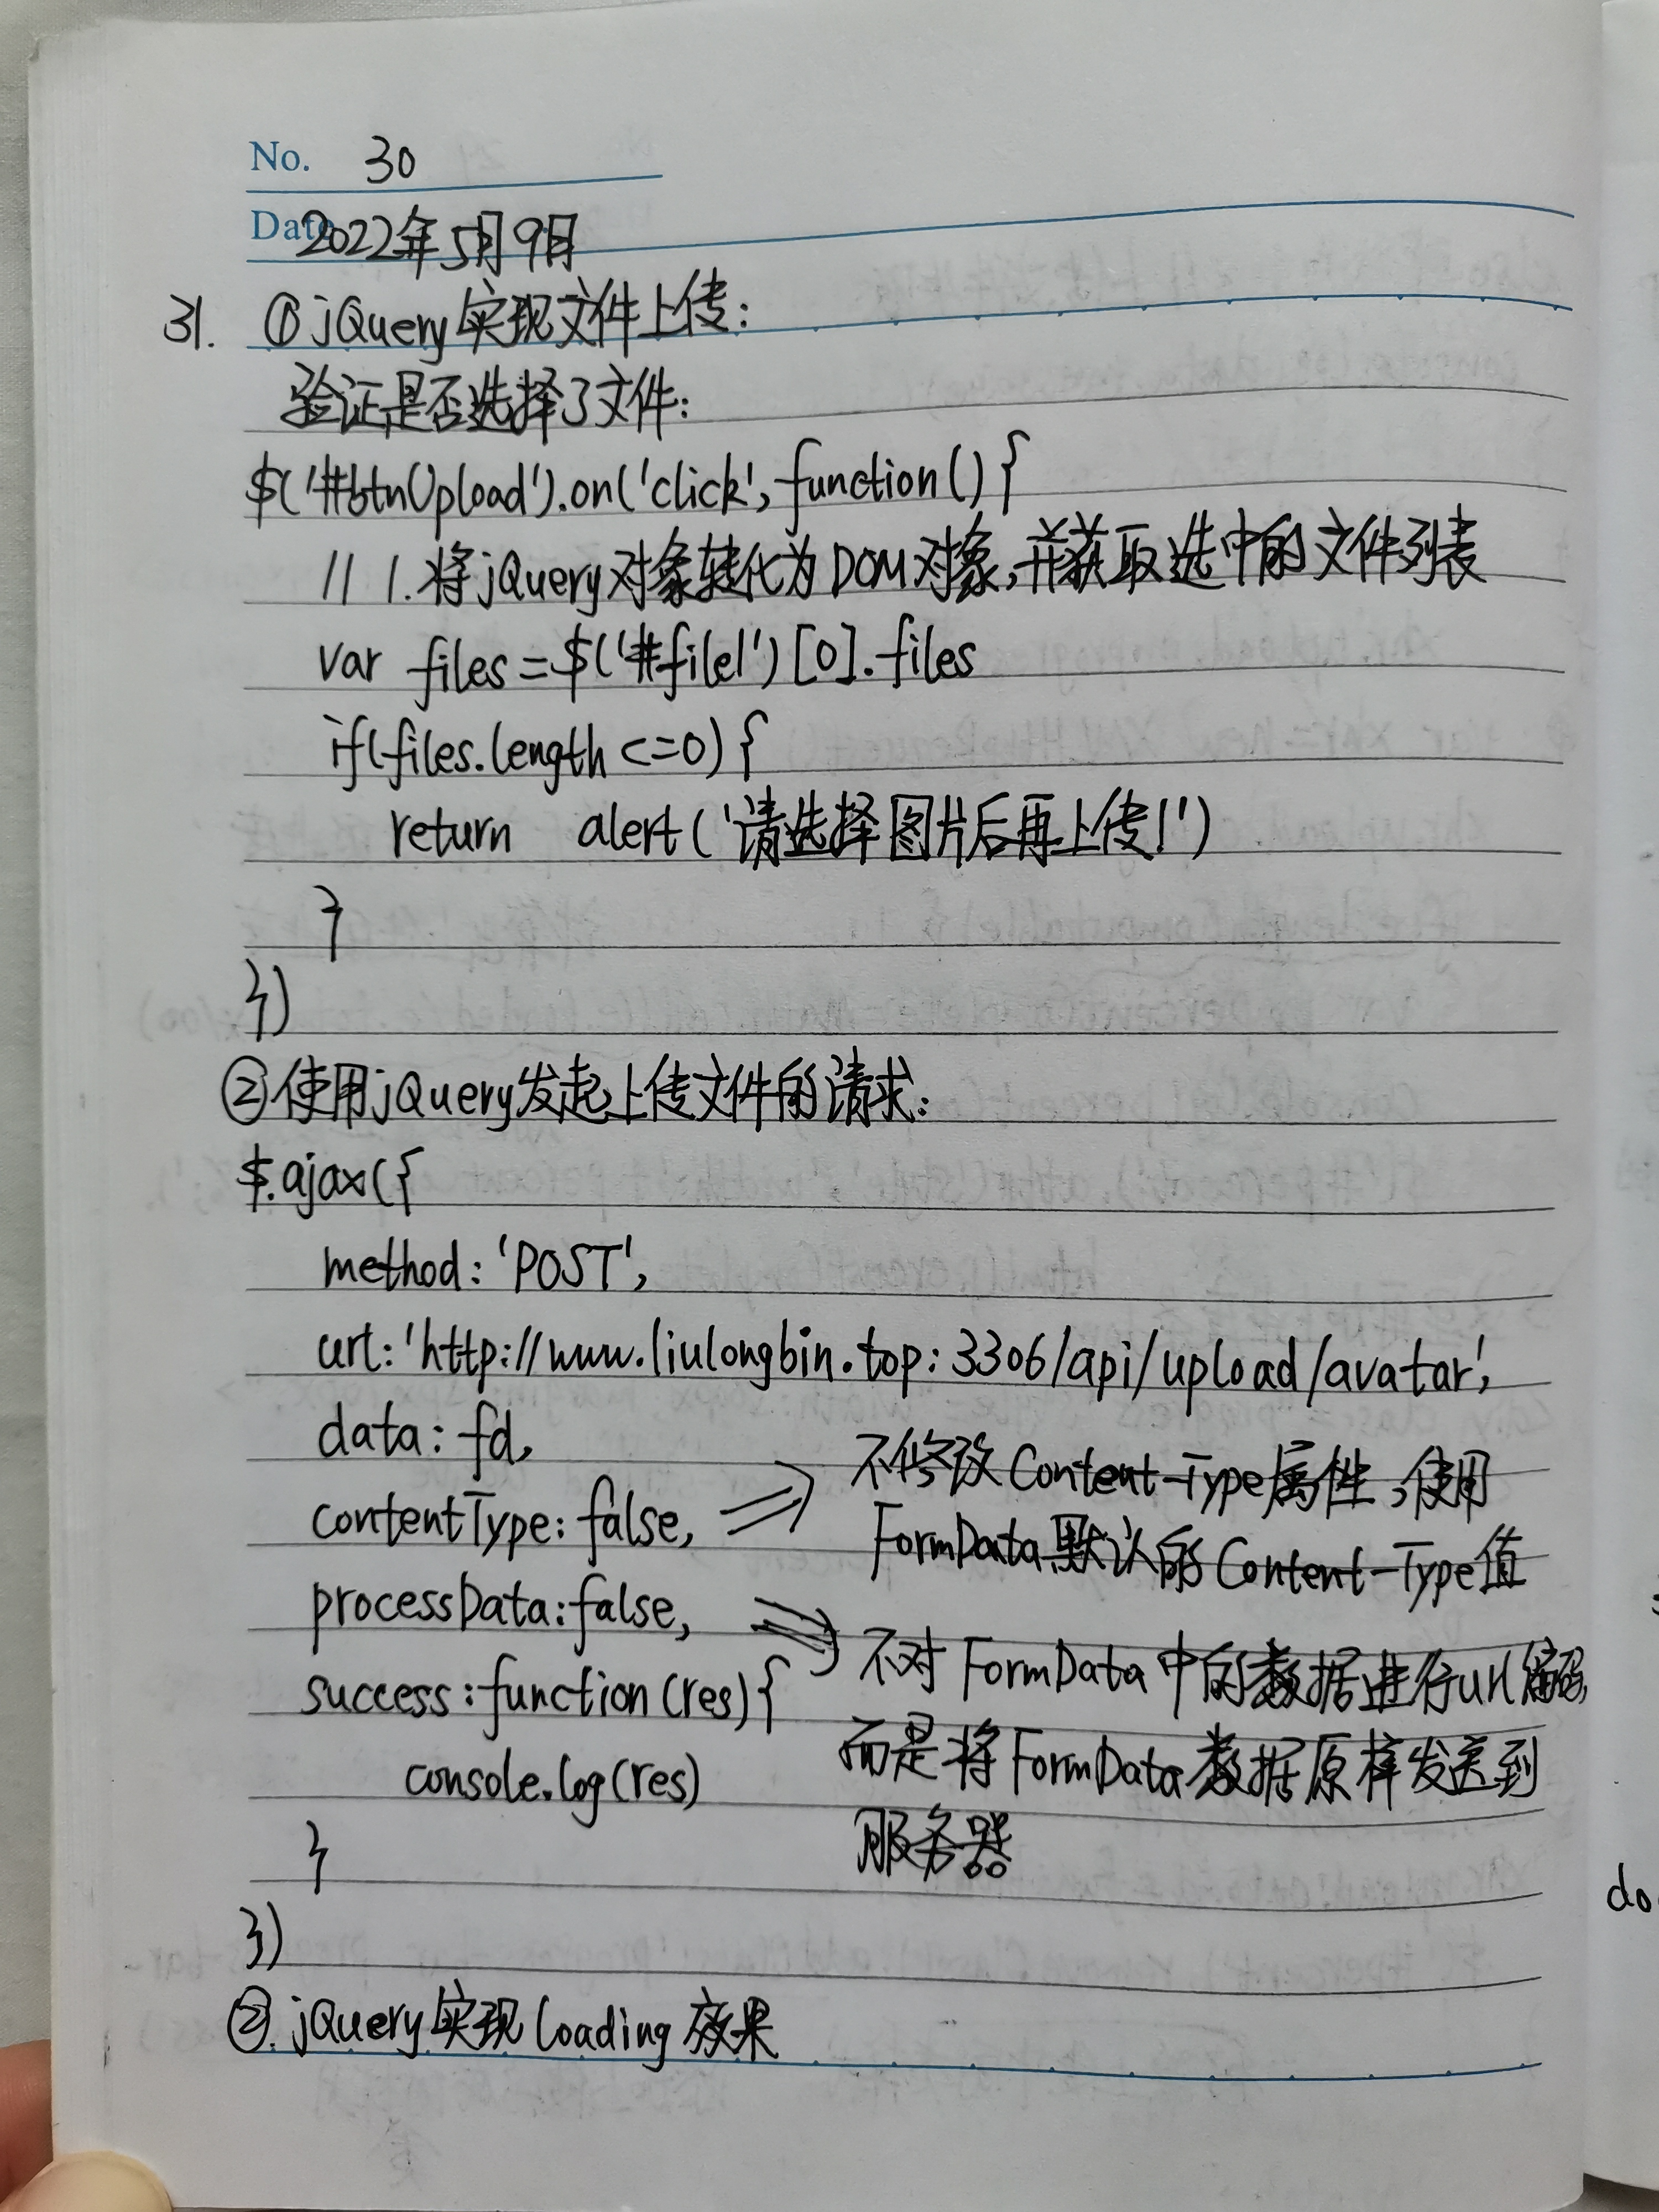 No. 30
Date 2022年5月9日
31. ①jQuery实现文件上传:
验证是否选择了文件:
$('#btnUpload').on('click', function() {
// 1.将jQuery对象转化为DOM对象,并获取选中的文件列表
var files = $('#file1')[0].files
if(files.length <=0) {
return alert('请选择图片后再上传!')
}
})
②使用jQuery发起上传文件的请求:
$.ajax({
method: 'POST',
url: 'http://www.liulongbin.top:3306/api/upload/avatar',
data: fd,
不修改Content-Type属性,使用
contentType: false, ⇒ FormData默认的Content-Type值
processData: false, ⇒ 不对FormData中的数据进行url编码,
success: function(res) { 而是将FormData数据原样发送到
console.log(res) 服务器
}
})
②. jQuery实现loading效果
do